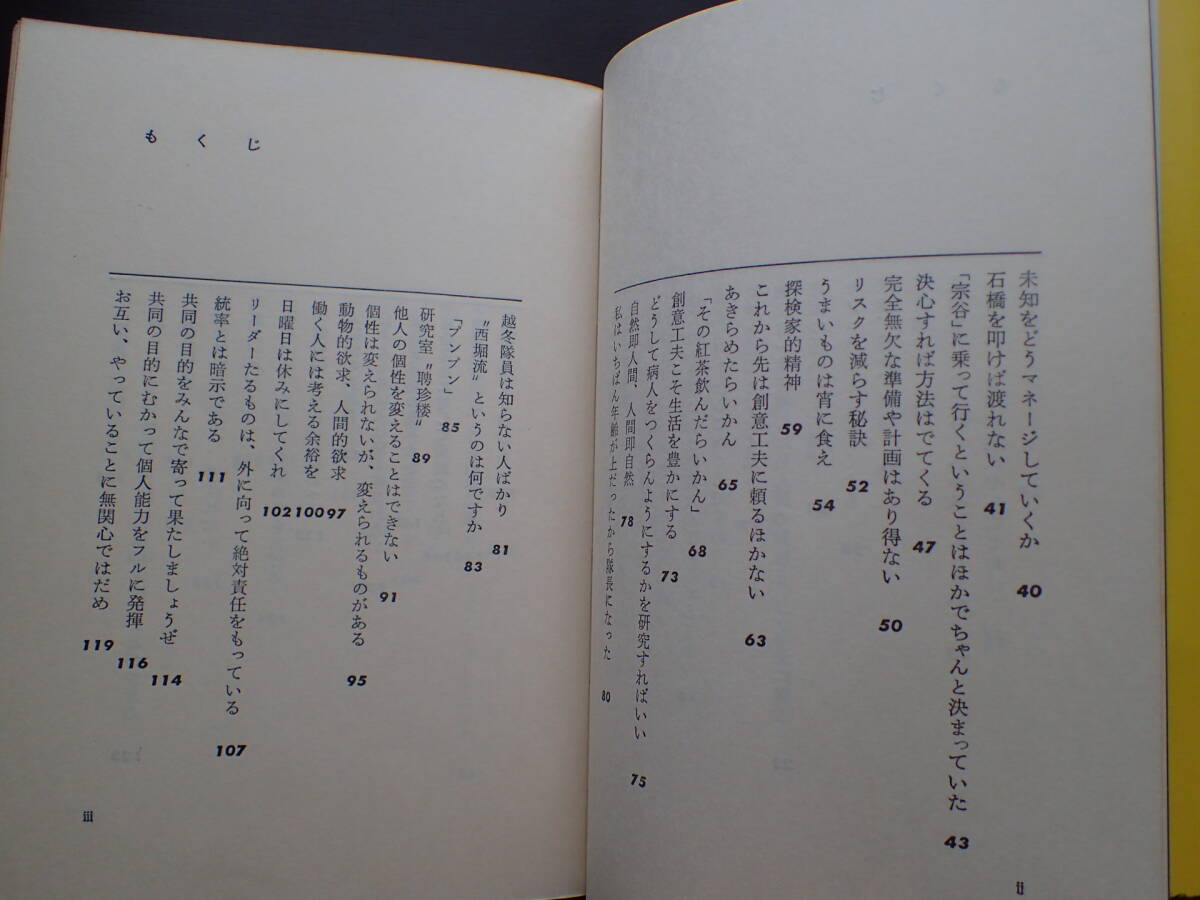 未知をどうマネージしていくか 40
石橋を叩けば渡れない 41
「宗谷」に乗って行くということはほかでちゃんと決まっていた 43
決心すれば方法はでてくる 47
完全無欠な準備や計画はあり得ない 50
リスクを減らす秘訣 52
うまいものは宵に食え 54
探検家的精神 59
これから先は創意工夫に頼るほかない 63
あきらめたらいかん 65
「その紅茶飲んだらいかん」 68
創意工夫こそ生活を豊かにする 73
どうして病人をつくらんようにするかを研究すればいい 75
自然即人間、人間即自然 78
私はいちばん年齢が上だったから隊長になった 80
ii
もくじ
越冬隊員は知らない人ばかり 81
"西堀流"というのは何ですか 83
「ブンブン」 85
研究室"聘珍楼" 89
他人の個性を変えることはできない 91
個性は変えられないが、変えられるものがある 95
動物的欲求、人間的欲求 97
働く人には考える余裕を 100
日曜日は休みにしてくれ 102
リーダーたるものは、外に向って絶対責任をもっている 107
統率とは暗示である 111
共同の目的をみんなで寄って果たしましょうぜ 114
共同の目的にむかって個人能力をフルに発揮 116
お互い、やっていることに無関心ではだめ 119
iii